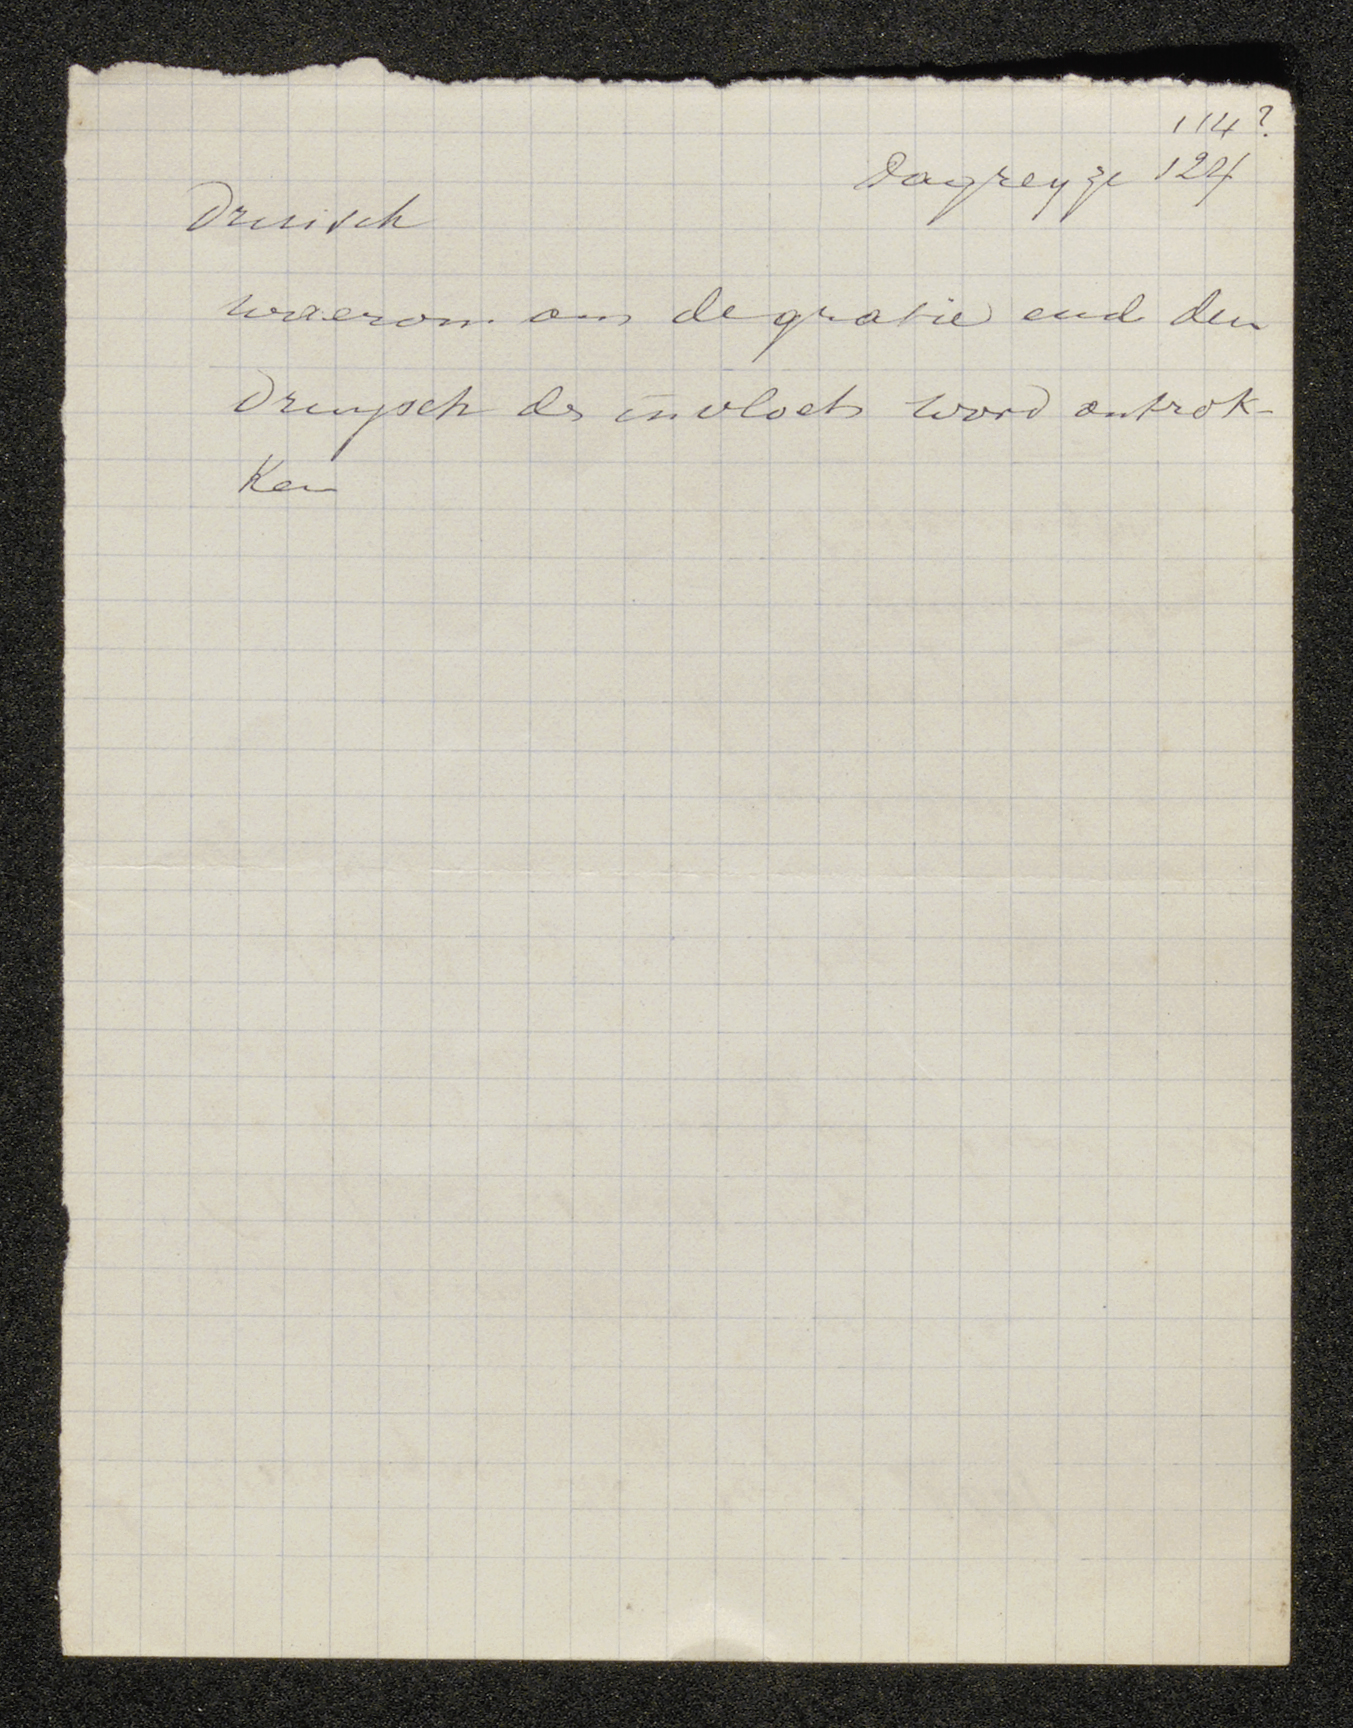 114?
Dagreyze 124
Druisch
waerom ons de gratie end den
Druysch des invloets word ontrok-
ken